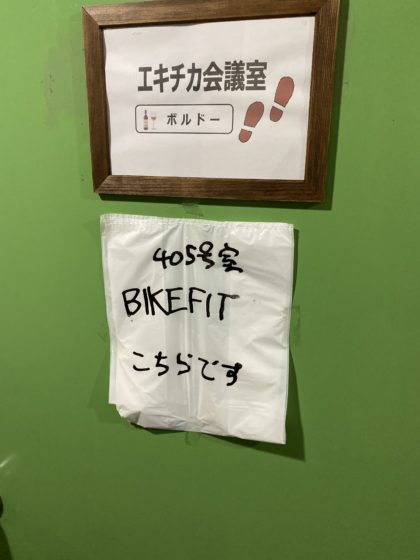 エキチカ会議室
ボルドー
405号室
BIKEFIT
こちらです